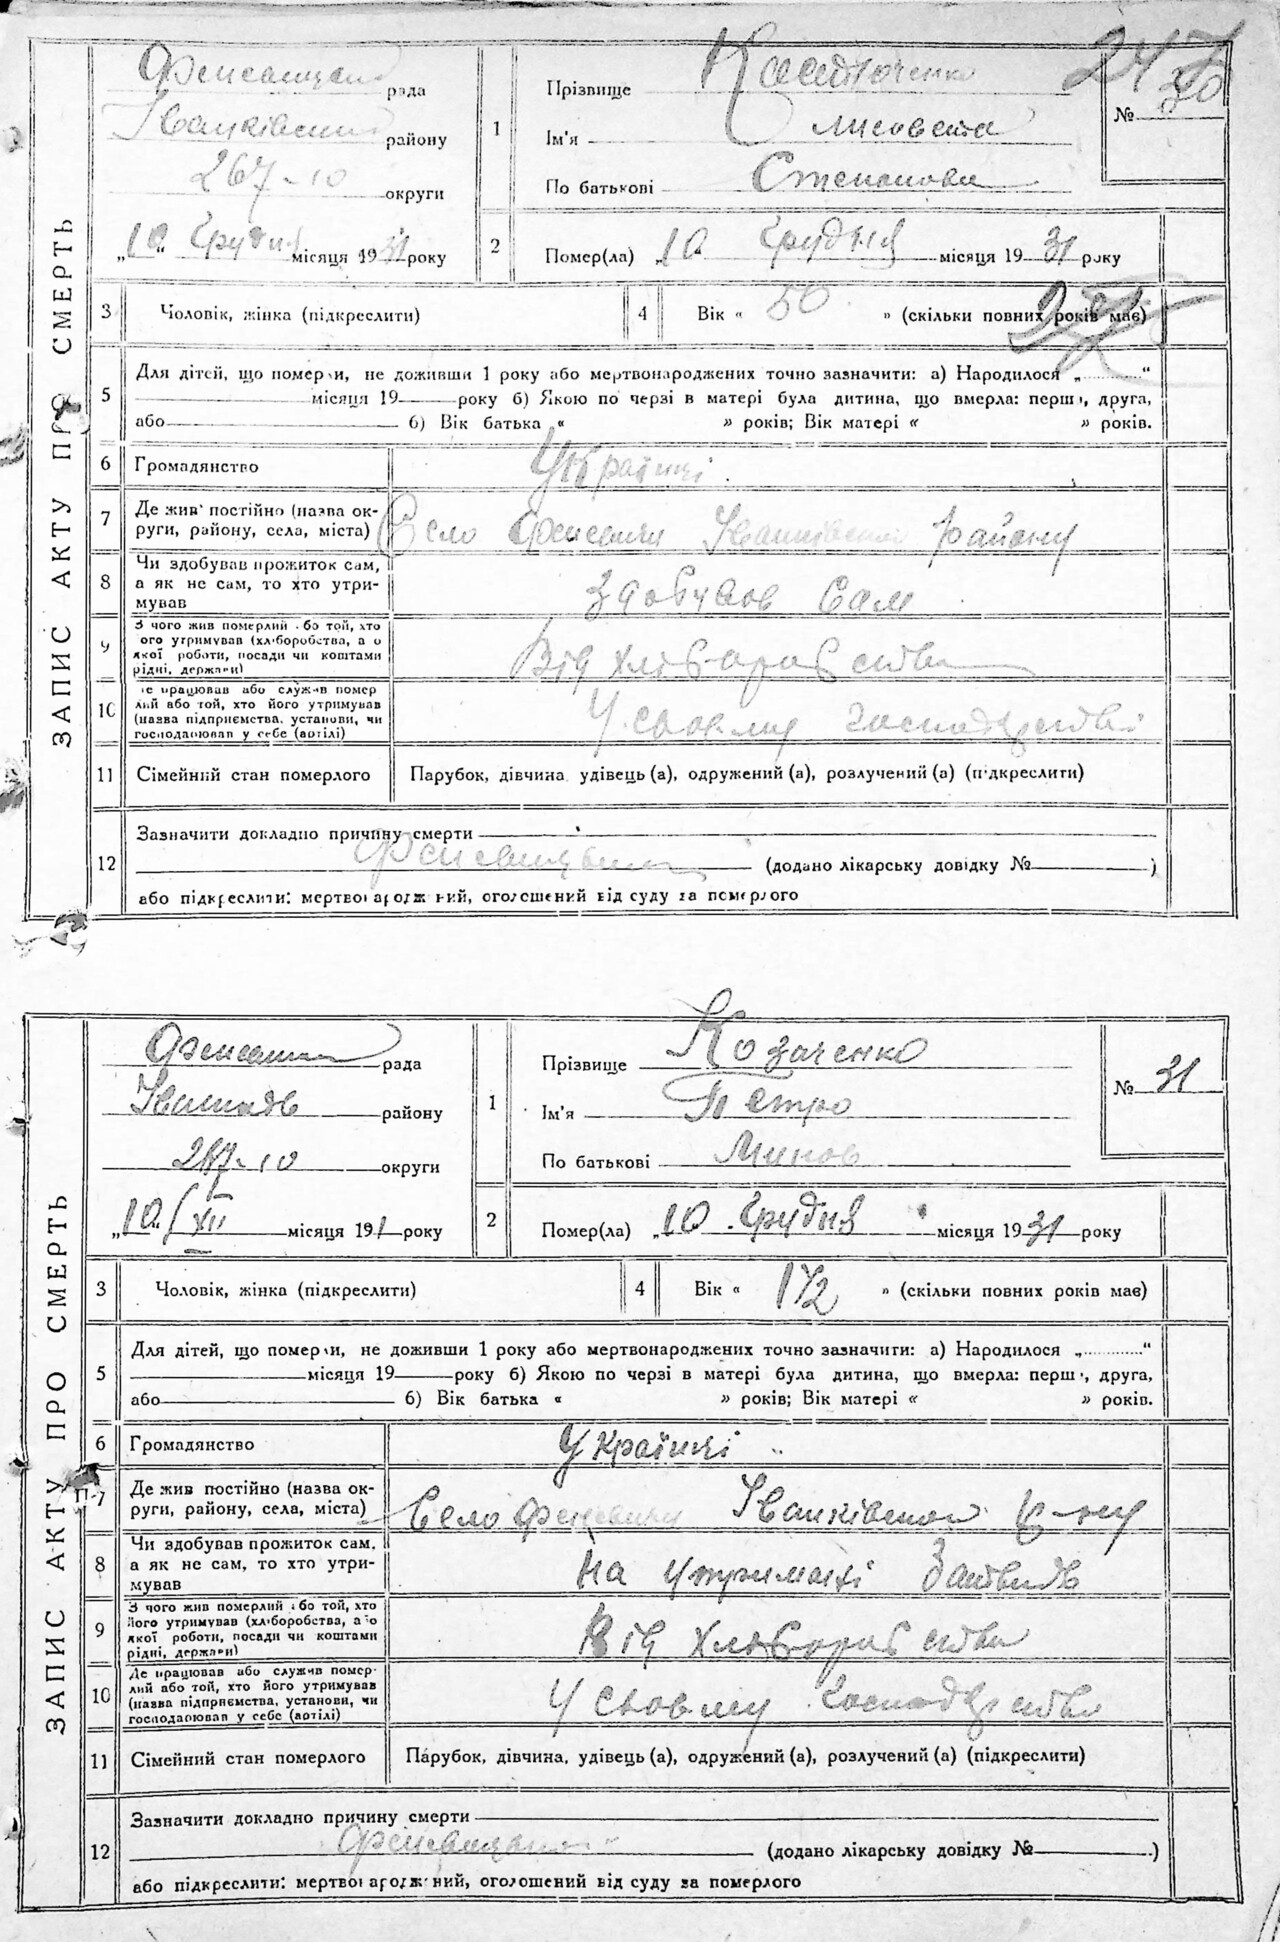 ЗАПИС АКТУ ПРО СМЕРТЬ
рада
району
267-10 округи
„10“ Грудня місяця 1931 року
1
Прізвище
Ім'я Лисовета
По батькові Степанова
№ 30
2
Помер(ла) „10 Грудня місяця 1931 року
3 Чоловік, жінка (підкреслити)
4 Вік « 50 » (скільки повних років має)
5 Для дітей, що померли, не доживши 1 року або мертвонароджених точно зазначити: а) Народилося „............“
місяця 19 року б) Якою по черзі в матері була дитина, що вмерла: перша, друга,
або б) Вік батька « » років; Вік матері « » років.
6 Громадянство Українці
7 Де жив постійно (назва округи, району, села, міста) Село Іванківської району
8 Чи здобував прожиток сам, а як не сам, то хто утримував Здобував Сам
9 З чого жив померлий або той, хто його утримував (хліборобства, або якої роботи, посади чи коштами рідні, держави) Від хліборобства
10 Де працював або служив померлий або той, хто його утримував (назва підприємства, установи, чи господарював у себе (артілі) У своєму господарстві
11 Сімейний стан померлого Парубок, дівчина, удівець (а), одружений (а), розлучений (а) (підкреслити)
12 Зазначити докладно причину смерти
(додано лікарську довідку № )
або підкреслити: мертвонароджений, оголошений від суду за померлого
ЗАПИС АКТУ ПРО СМЕРТЬ
рада
району
267-10 округи
„10“ XII місяця 1931 року
1
Прізвище Козаченко
Ім'я Петро
По батькові Минов
№ 31
2
Помер(ла) „10 Грудня місяця 1931 року
3 Чоловік, жінка (підкреслити)
4 Вік « 1 1/2 » (скільки повних років має)
5 Для дітей, що померли, не доживши 1 року або мертвонароджених точно зазначити: а) Народилося „............“
місяця 19 року б) Якою по черзі в матері була дитина, що вмерла: перша, друга,
або б) Вік батька « » років; Вік матері « » років.
6 Громадянство Українці
7 Де жив постійно (назва округи, району, села, міста) Село Іванківської р-ну
8 Чи здобував прожиток сам, а як не сам, то хто утримував На утриманні батьків
9 З чого жив померлий або той, хто його утримував (хліборобства, або якої роботи, посади чи коштами рідні, держави) Від хліборобства
10 Де працював або служив померлий або той, хто його утримував (назва підприємства, установи, чи господарював у себе (артілі) У своєму господарстві
11 Сімейний стан померлого Парубок, дівчина, удівець (а), одружений (а), розлучений (а) (підкреслити)
12 Зазначити докладно причину смерти
(додано лікарську довідку № )
або підкреслити: мертвонароджений, оголошений від суду за померлого